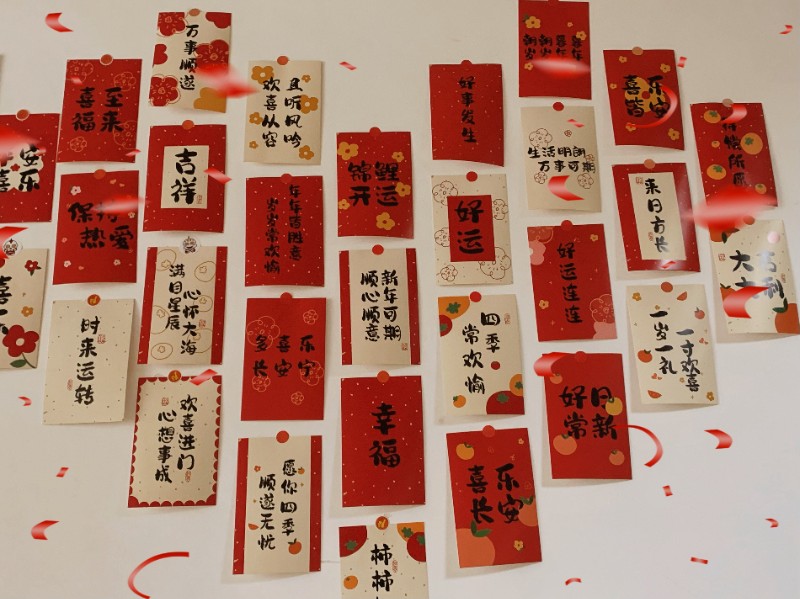 安乐
喜
喜至
福来
保
热爱
时来运转
万事顺遂
吉祥
满目星辰
心怀大海
欢喜进门
心想事成
且听风吟
欢喜从容
年年皆胜意
岁岁常欢愉
多喜乐
长安宁
愿你四季
顺遂无忧
锦鲤
开运
新年可期
顺心顺意
幸福
柿柿
好事发生
好运
四季
常欢愉
喜乐
长安
朝朝暮暮
岁岁年年
生活明朗
万事可期
好运连连
好日
常新
喜乐
皆安
来日方长
一岁一礼
一寸欢喜
所愿
大吉
利